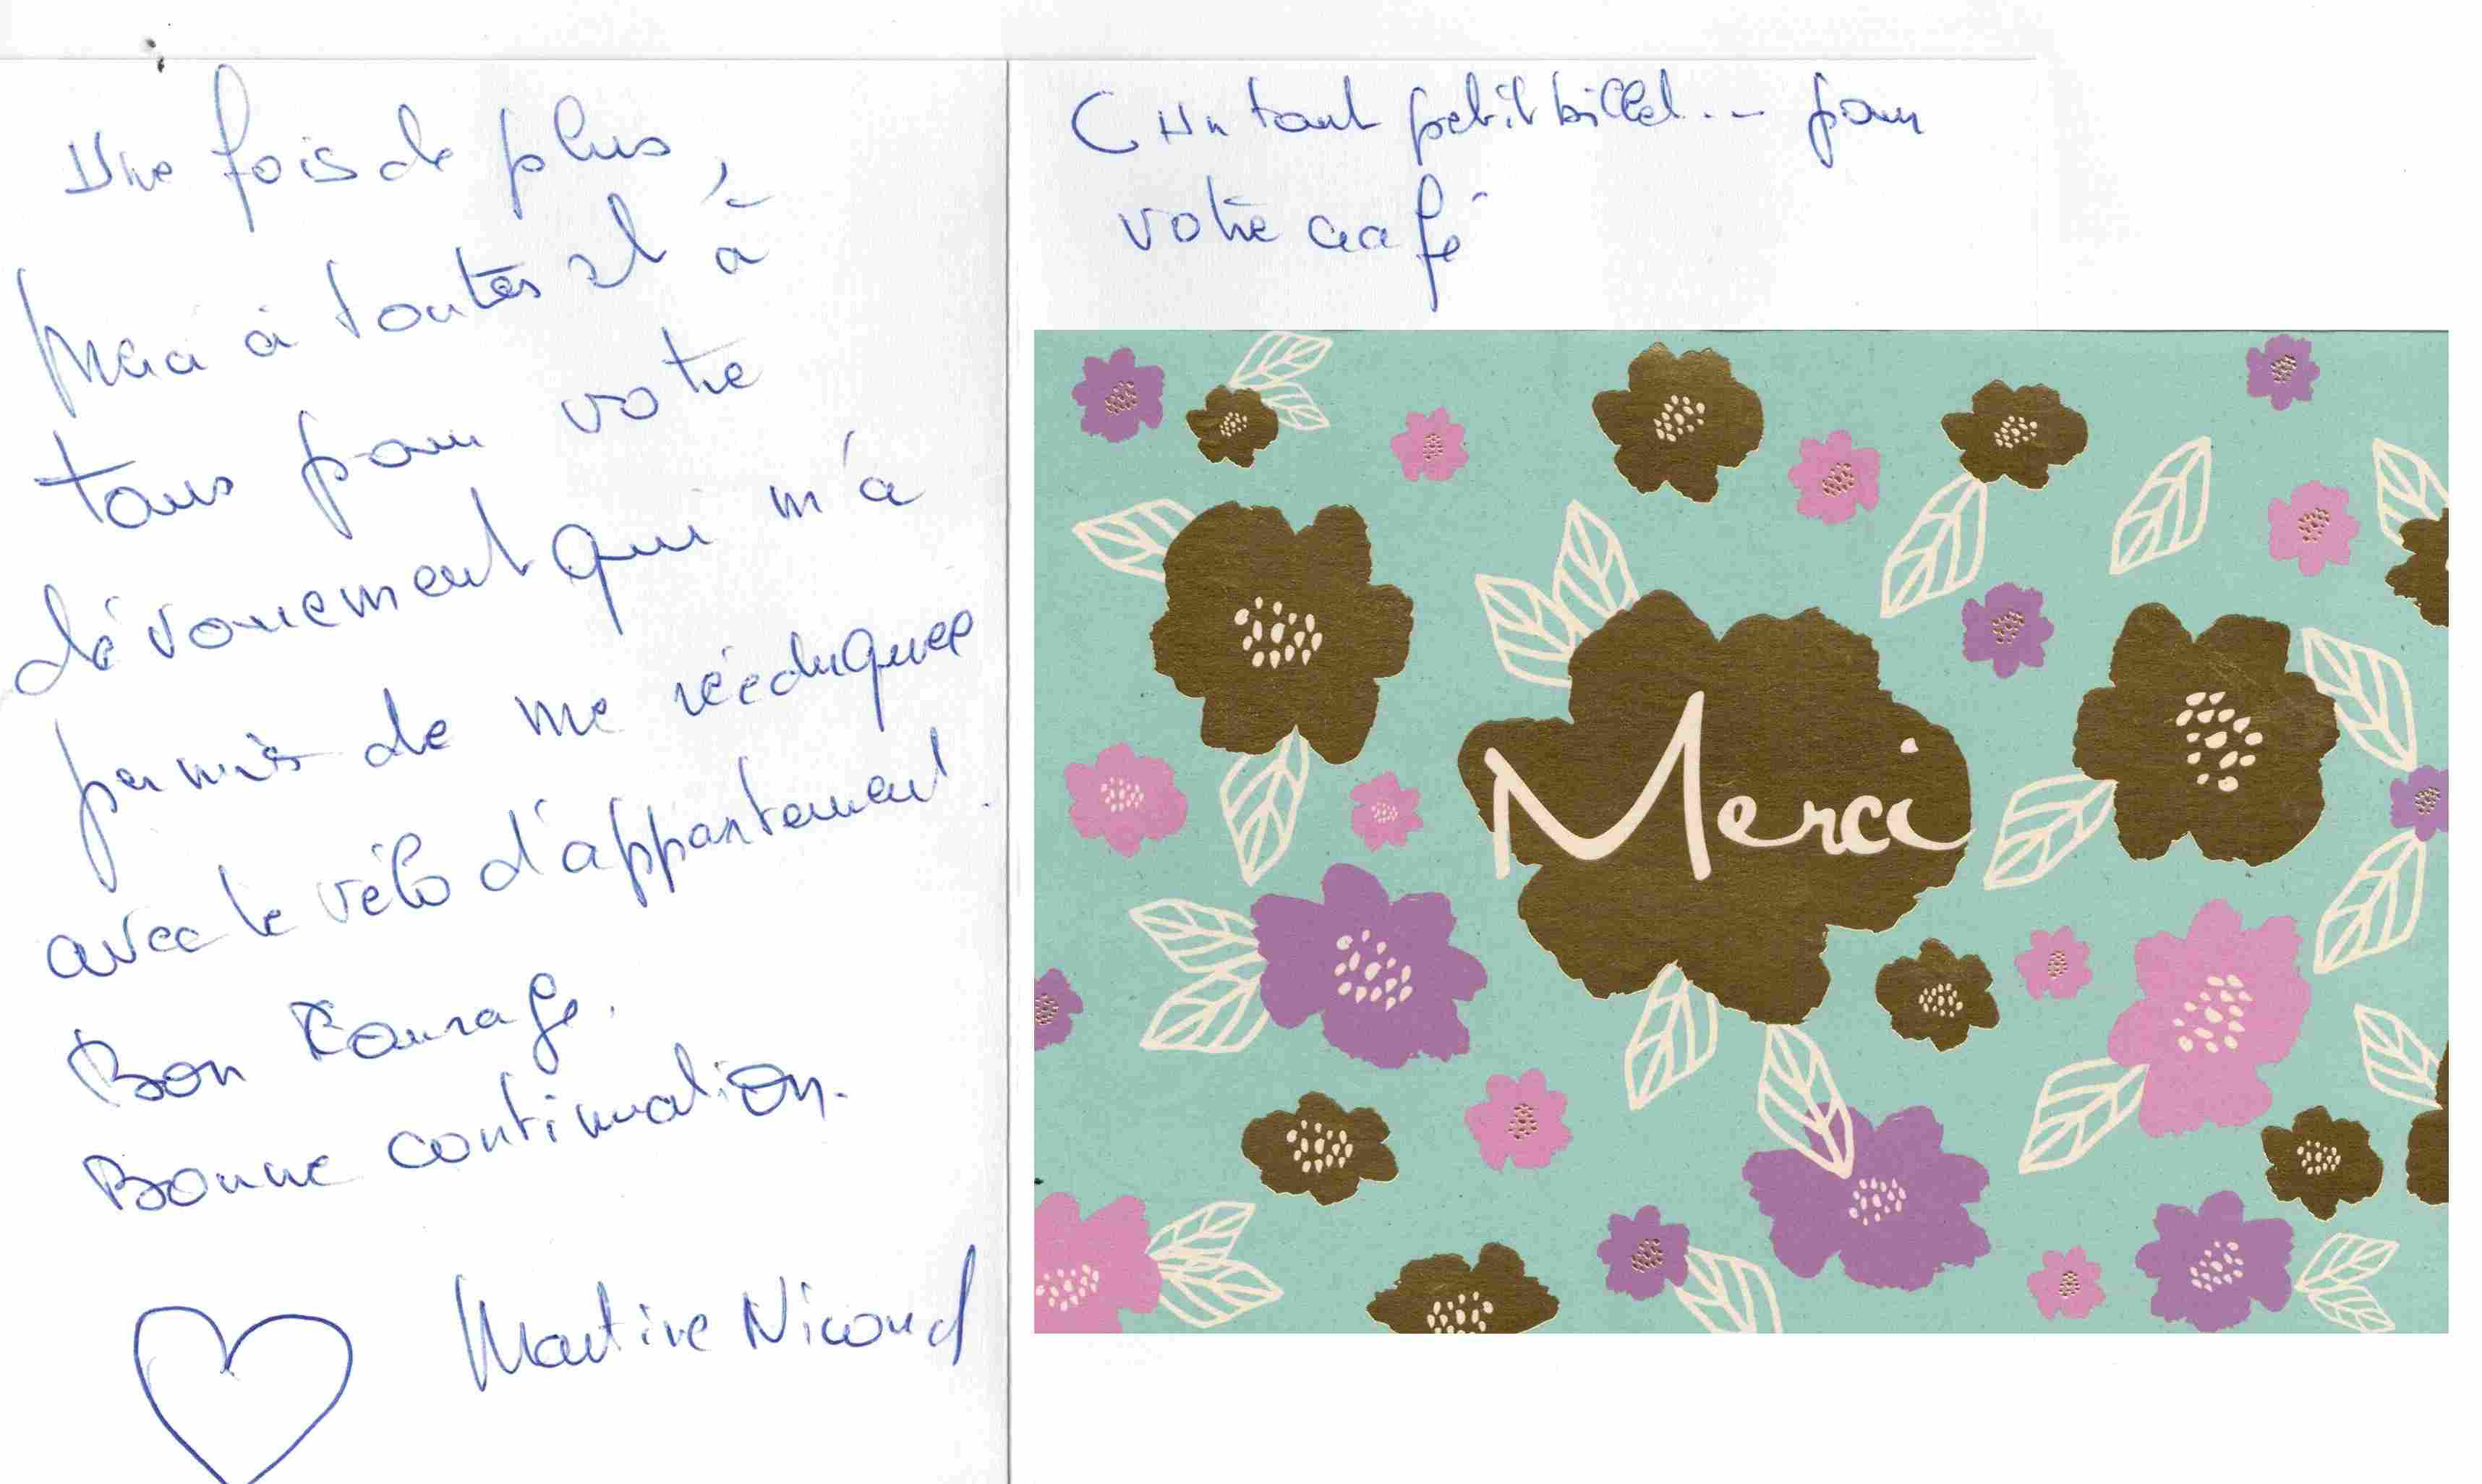 Une fois de plus,
merci à toutes et à
tous pour votre
dévouement qui m'a
permis de me rééduquer
avec le vélo d'appartement.
Bon Courage.
Bonne continuation.
Martine Nicoud
( un tout petit billet... pour
votre café
Merci